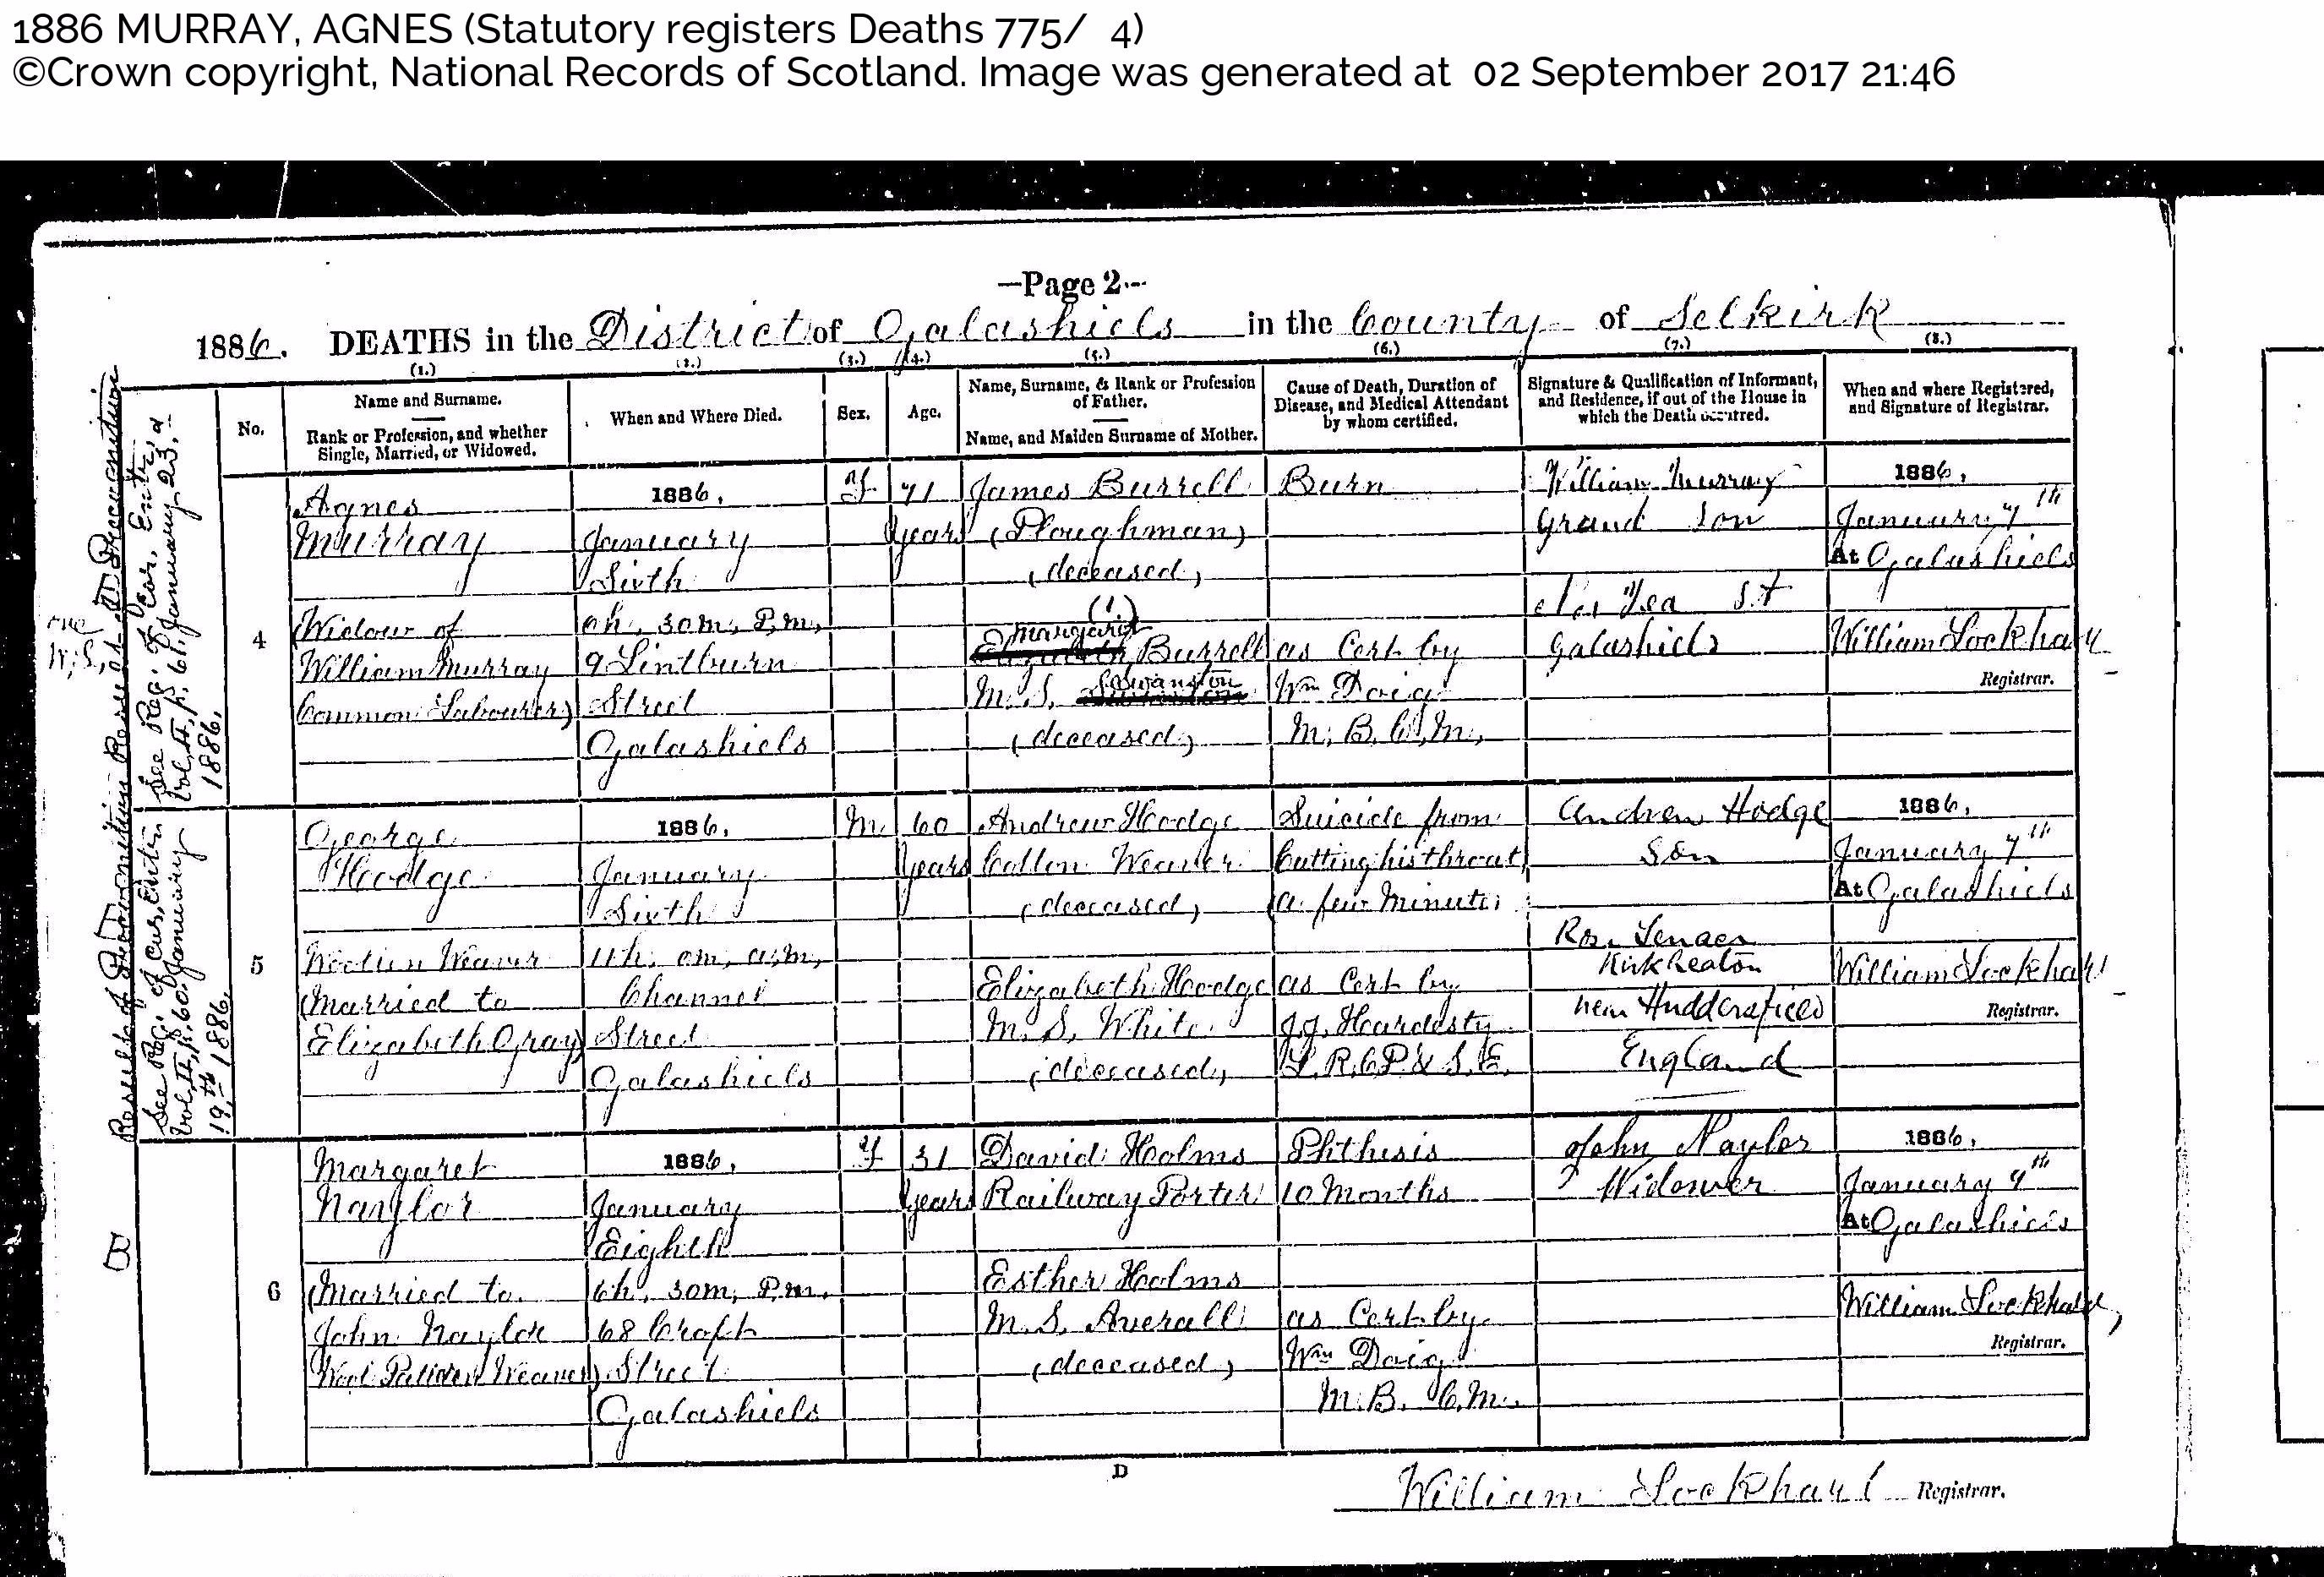 1886 MURRAY, AGNES (Statutory registers Deaths 775/ 4)
©Crown copyright, National Records of Scotland. Image was generated at 02 September 2017 21:46
—Page 2—
1886. DEATHS in the District of Galashiels in the County of Selkirk
(1.) (2.) (3.) (4.) (5.) (6.) (7.) (8.)
No.
Name and Surname.
Rank or Profession, and whether
Single, Married, or Widowed.
When and Where Died.
Sex.
Age.
Name, Surname, & Rank or Profession
of Father.
Name, and Maiden Surname of Mother.
Cause of Death, Duration of
Disease, and Medical Attendant
by whom certified.
Signature & Qualification of Informant,
and Residence, if out of the House in
which the Death occurred.
When and where Registered,
and Signature of Registrar.
Result of a Precognition
See Reg. of Cor. Entries
Vol. II, p. 61. January 23d
1886.
4
Agnes
Murray
Widow of
William Murray
Common Labourer)
1886,
January
Sixth
0h. 30m. P.m.
9 Lintburn
Street
Galashiels
F
71
years
James Burrell
(Ploughman)
(deceased)
(1.)
Margaret
Elizabeth Burrell
Swanston
M. S.
(deceased)
Burn
as Cert by
Wm Doig
M. B. C. M.
William Murray
Grand Son
St
Galashiels
1886,
January 7th
At Galashiels
William Lockhart
Registrar.
Result of Precognition
See Reg. of Cor. Entries
Vol. II, p. 60. January
19th 1886.
5
George
Hodge
Woollen Weaver
(Married to
Elizabeth Gray)
1886,
January
Sixth
11h. 0m. a.m.
Channel
Street
Galashiels
M
60
years
Andrew Hodge
Cotton Weaver
(deceased)
Elizabeth Hodge
M. S. White
(deceased)
Suicide from
Cutting his throat
(a few Minutes
as Cert by
J. J. Hardesty
L. R. C. P. & S. E.
Andrew Hodge
Son
Kirkheaton
near Huddersfield
England
1886,
January 7th
At Galashiels
William Lockhart
Registrar.
6
Margaret
Naylor
(Married to
John Naylor
Wool Pattern Weaver)
1886,
January
Eighth
6h. 30m. P.m.
68 Croft
Street
Galashiels
F
31
years
David Holms
Railway Porter
Esther Holms
M. S. Averall
(deceased)
Phthisis
10 Months
as Cert by
Wm Doig
M. B. C. M.
John Naylor
Widower
1886,
January 9th
At Galashiels
William Lockhart
Registrar.
D
William Lockhart Registrar.